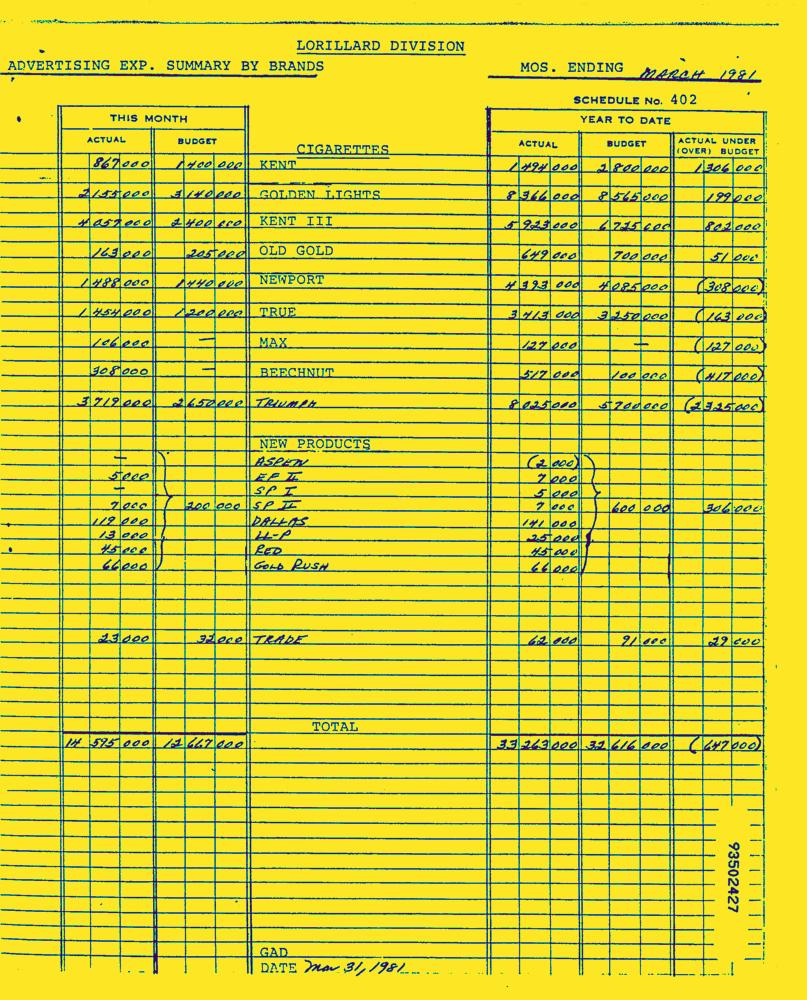 LORILLARD DIVISION
ADVERTISING EXP. SUMMARY BY BRANDS MOS. ENDING MARCH 1981
SCHEDULE No. 402
THIS MONTH YEAR TO DATE
ACTUAL BUDGET CIGARETTES ACTUAL BUDGET ACTUAL UNDER (OVER) BUDGET
867 000 1 400 000 KENT 1 494 000 2 800 000 1 306 000
2 155 000 3 140 000 GOLDEN LIGHTS 8 366 000 8 565 000 199 000
4 057 000 2 400 000 KENT III 5 923 000 6 725 000 802 000
163 000 205 000 OLD GOLD 649 000 700 000 51 000
1 488 000 1 440 000 NEWPORT 4 393 000 4 085 000 (308 000)
1 454 000 1 200 000 TRUE 3 413 000 3 250 000 (163 000)
106 000 — MAX 127 000 — (127 000)
308 000 — BEECHNUT 517 000 100 000 (417 000)
3 719 000 2 650 000 TRIUMPH 8 025 000 5 700 000 (2 325 000)
NEW PRODUCTS
— ASPEN (2 000)
5 000 EP II 7 000
— SP I 5 000
7 000 200 000 SP II 7 000 600 000 306 000
119 000 DALLAS 141 000
13 000 LL-P 25 000
45 000 RED 45 000
66 000 GOLD RUSH 66 000
23 000 32 000 TRADE 62 000 91 000 29 000
TOTAL
14 595 000 12 667 000 33 263 000 32 616 000 (647 000)
93502427
GAD
DATE Mar 31, 1981